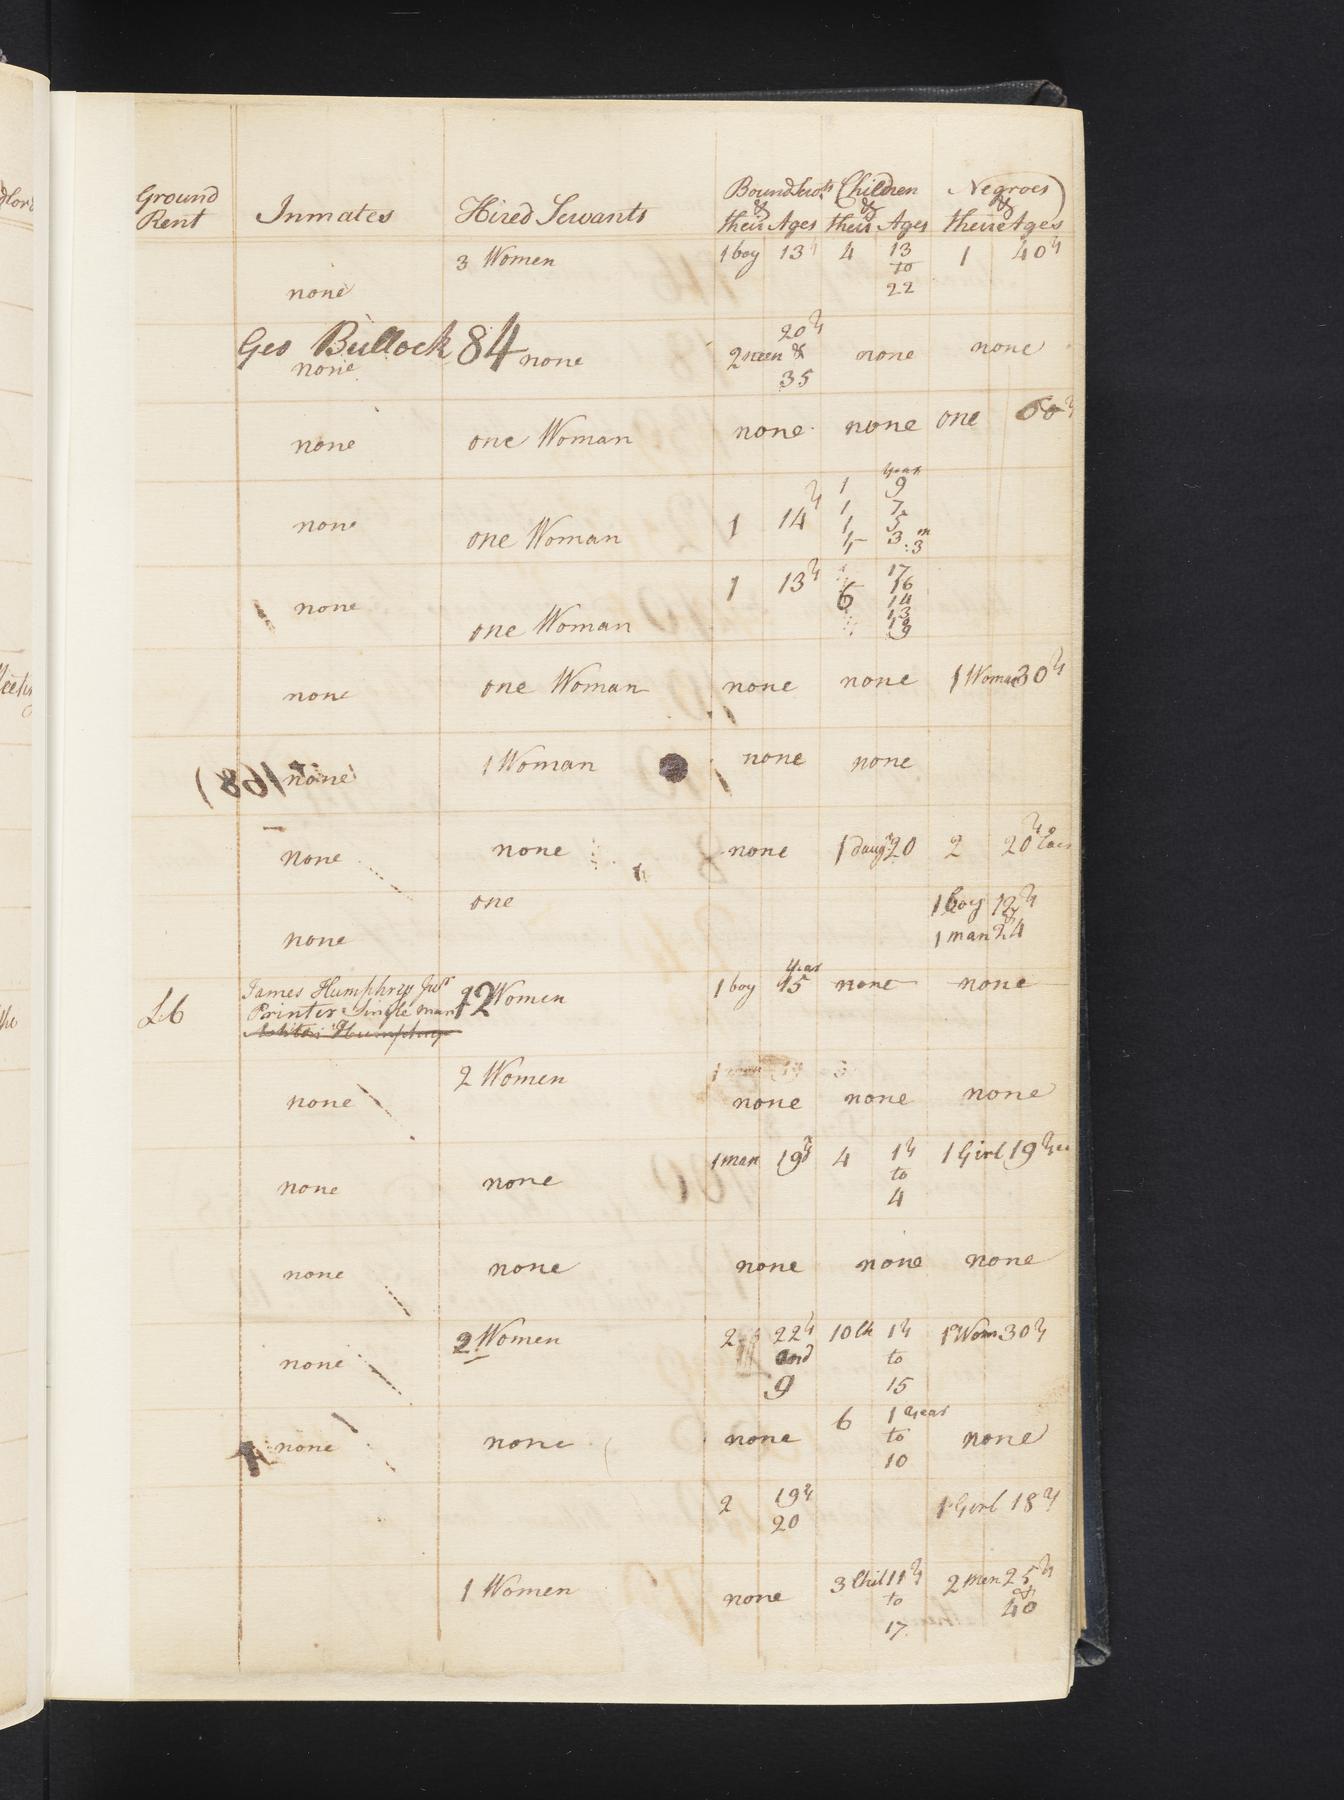 Ground Rent Inmates Hired Servants Bound Servts & their Ages Children & their Ages Negroes & their Ages
3 Women 1 boy 13 y 4 13 to 22 1 40 y
none
Geo Bullock 84 none 2 men 20 y & 35 none none
none
none one Woman none none one 60 y
none one Woman 1 14 y 1 year 9
1 7
1 5
3 : 3 m
none one Woman 1 13 y 6 17
16
14
13
9
none one Woman none none 1 Woman 30 y
(168) none 1 Woman none none
none none none 1 daugr 20 2 20 y
none one 1 boy 12 y
1 man 24
£6 James Humphrey Junr 2 Women 1 boy 15 year none none
Printer Single man
Humphrey
none 2 Women none none none
none none 1 man 19 y 4 1 y to 4 1 Girl 19 y
none none none none none
none 2 Women 2 22 y and 9 10 Ch 1 y to 15 1 Wom 30 y
none none none 6 1 year to 10 none
2 19 y 20 1 Girl 18 y
1 Women none 3 Chil 11 y to 17 2 men 25 y & 40